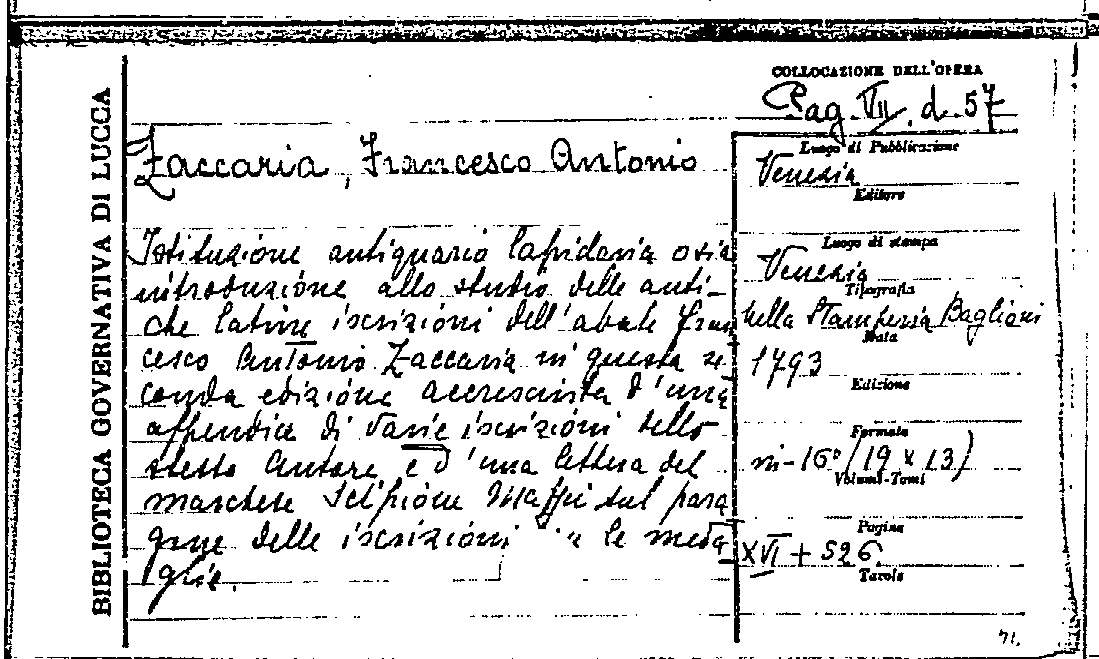 BIBLIOTECA GOVERNATIVA DI LUCCA
COLLOCAZIONE DELL'OPERA
Pag. VII. d. 57
Zaccaria, Francesco Antonio
Luogo di Pubblicazione
Venezia
Editore
Istituzione antiquario lapidaria osia
introduzione allo studio delle anti-
che latine iscrizioni dell'abate Fran
cesco Antonio Zaccaria in questa se
conda edizione accresciuta d'una
appendice di varie iscrizioni dello
stesso Autore, e d'una lettera del
marchese Scipione Maffei sul para
gone delle iscrizioni le meda
glie.
Luogo di stampa
Venezia
Tipografia
nella Stamperia Baglioni
Data
1793
Edizione
Formato
in-16° (19 x 13)
Volumi-Tomi
Pagine
XVI + 526
Tavole